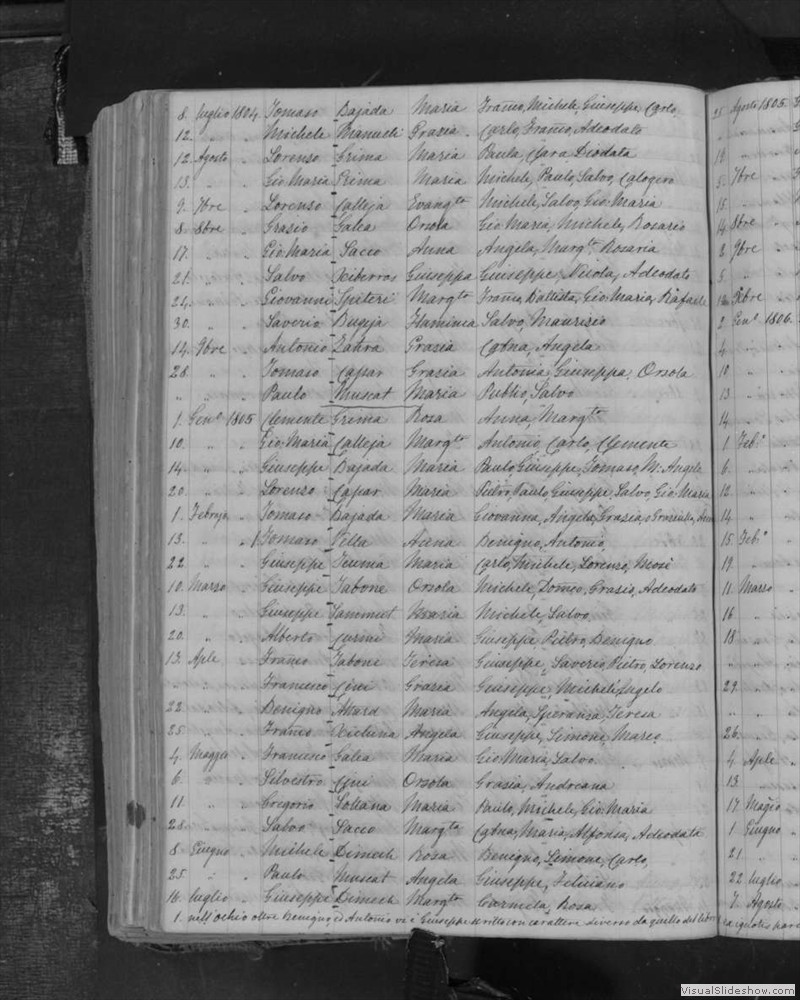 8. luglio 1804 Tomaso Bajada Maria Franco, Michele, Giuseppe, Carlo,
12. " . Michele Manueli Grazia . Carlo, Franco, Adeodato
12. Agosto . Lorenzo Grima Maria Paula, Clara Diodata
13. " . Gio Maria Prima Maria Michele, Paulo, Salvo, Calogero
9. 7bre . Lorenzo Calleja Evangta Michele, Salvo, Gio Maria
8. 8bre . Grazio Galea Orsola Gio Maria, Michele, Rosario
17. " . Gio Maria Sacco Anna Angela, Margta Rosaria
21. " . Salvo Xiberras Giuseppa Giuseppe, Nicola, Adeodato
24. " . Giovanni Spiteri Margta Franco, Battista, Gio Maria, Rafaele
30. " . Saverio Bugeja Flaminea Salvo, Maurizio
14. 9bre . Antonio Zahra Grazia Catna, Angela
28 " . Tomaso Caspar Grazia Antonia, Giuseppa, Orsola
" " . Paulo Muscat Maria Publio, Salvo
1. Geno 1805 Clemente Grima Rosa Anna, Margta
10. " . Gio Maria Calleja Margta Antonio, Carlo, Clemente
14. " . Giuseppe Bajada Maria Paulo Giuseppe, Tomaso, M. Angelo
20. " . Lorenzo Caspar Maria Pietro, Paulo, Giuseppe, Salvo, Gio Maria
1. Febrajo . Tomaso Bajada Maria Giovanna, Angela, Grazia,
13. " . 1 Tomaso Vella Anna Benigno, Antonio,
22 " . Giuseppe Teuma Maria Carlo, Michele, Lorenzo, Mosè
10. Marzo . Giuseppe Tabone Orsola Michele, Domco, Grazio, Adeodato
13. " . Giuseppe Sammut Maria Michele, Salvo
20. " . Alberto Cursini Maria Giuseppe, Pietro, Benigno
13. Aple . Franco Tabone Teresa Giuseppe, Saverio, Pietro, Lorenzo
" " . Francesco Cini Grazia Giuseppe, Michel'Angelo
22. " . Benigno Attard Maria Angela, Speranza, Teresa
25. " . Franco Xicluna Angela Giuseppe, Simone, Marco
4. Maggio . Francesco Galea Maria Gio Maria, Salvo
6. " . Silvestro Cini Orsola Grazia, Andreana
11. " . Gregorio Soltana Maria Paulo, Michele, Gio Maria
28. " . Salvo Sacco Margta Catna, Maria, Alfonsa, Adeodata
8 Giugno . Michele Dimech Rosa Benigno, Simone, Carlo,
25. " . Paulo Muscat Angela Giuseppe, Feliciano
16. luglio . Giuseppe Dimech Margta Carmela, Rosa
1. nell'ochio oltre Benigno, e Antonio vi è Giuseppe scritto con carattere diverso da quello del libro
25 Agosto 1805.
12 "
5. 7bre
15. "
14 8bre
2 9bre
5 "
Xbre
2 Geno 1806.
4. "
10 "
13 "
14. "
1 Febo
6. "
12 "
14 "
15 Febo
19 "
11. Marzo
16 "
18 "
" "
29. "
" "
26. "
4. Aple
13. "
17 Magio
1 Giugno
21 "
22 luglio
7. Agosto
VisualSlideshow.com